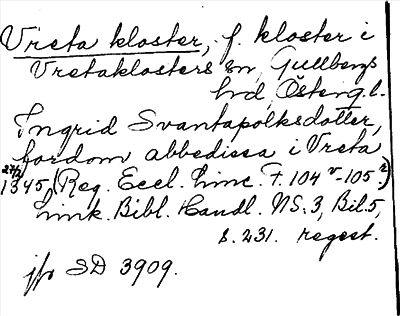 Vreta kloster, f. kloster i
Vretaklosters sn, Gullbergs
hd, Östergl.
Ingrid Svantapolksdotter,
fordom abbedissa i Vreta
27/2 1345, (Reg. Eccl. Linc. F. 104 v - 105 r)
Link. Bibl. Handl. NS: 3, Bil. 5,
s. 231. regest.
jfr SD 3909.